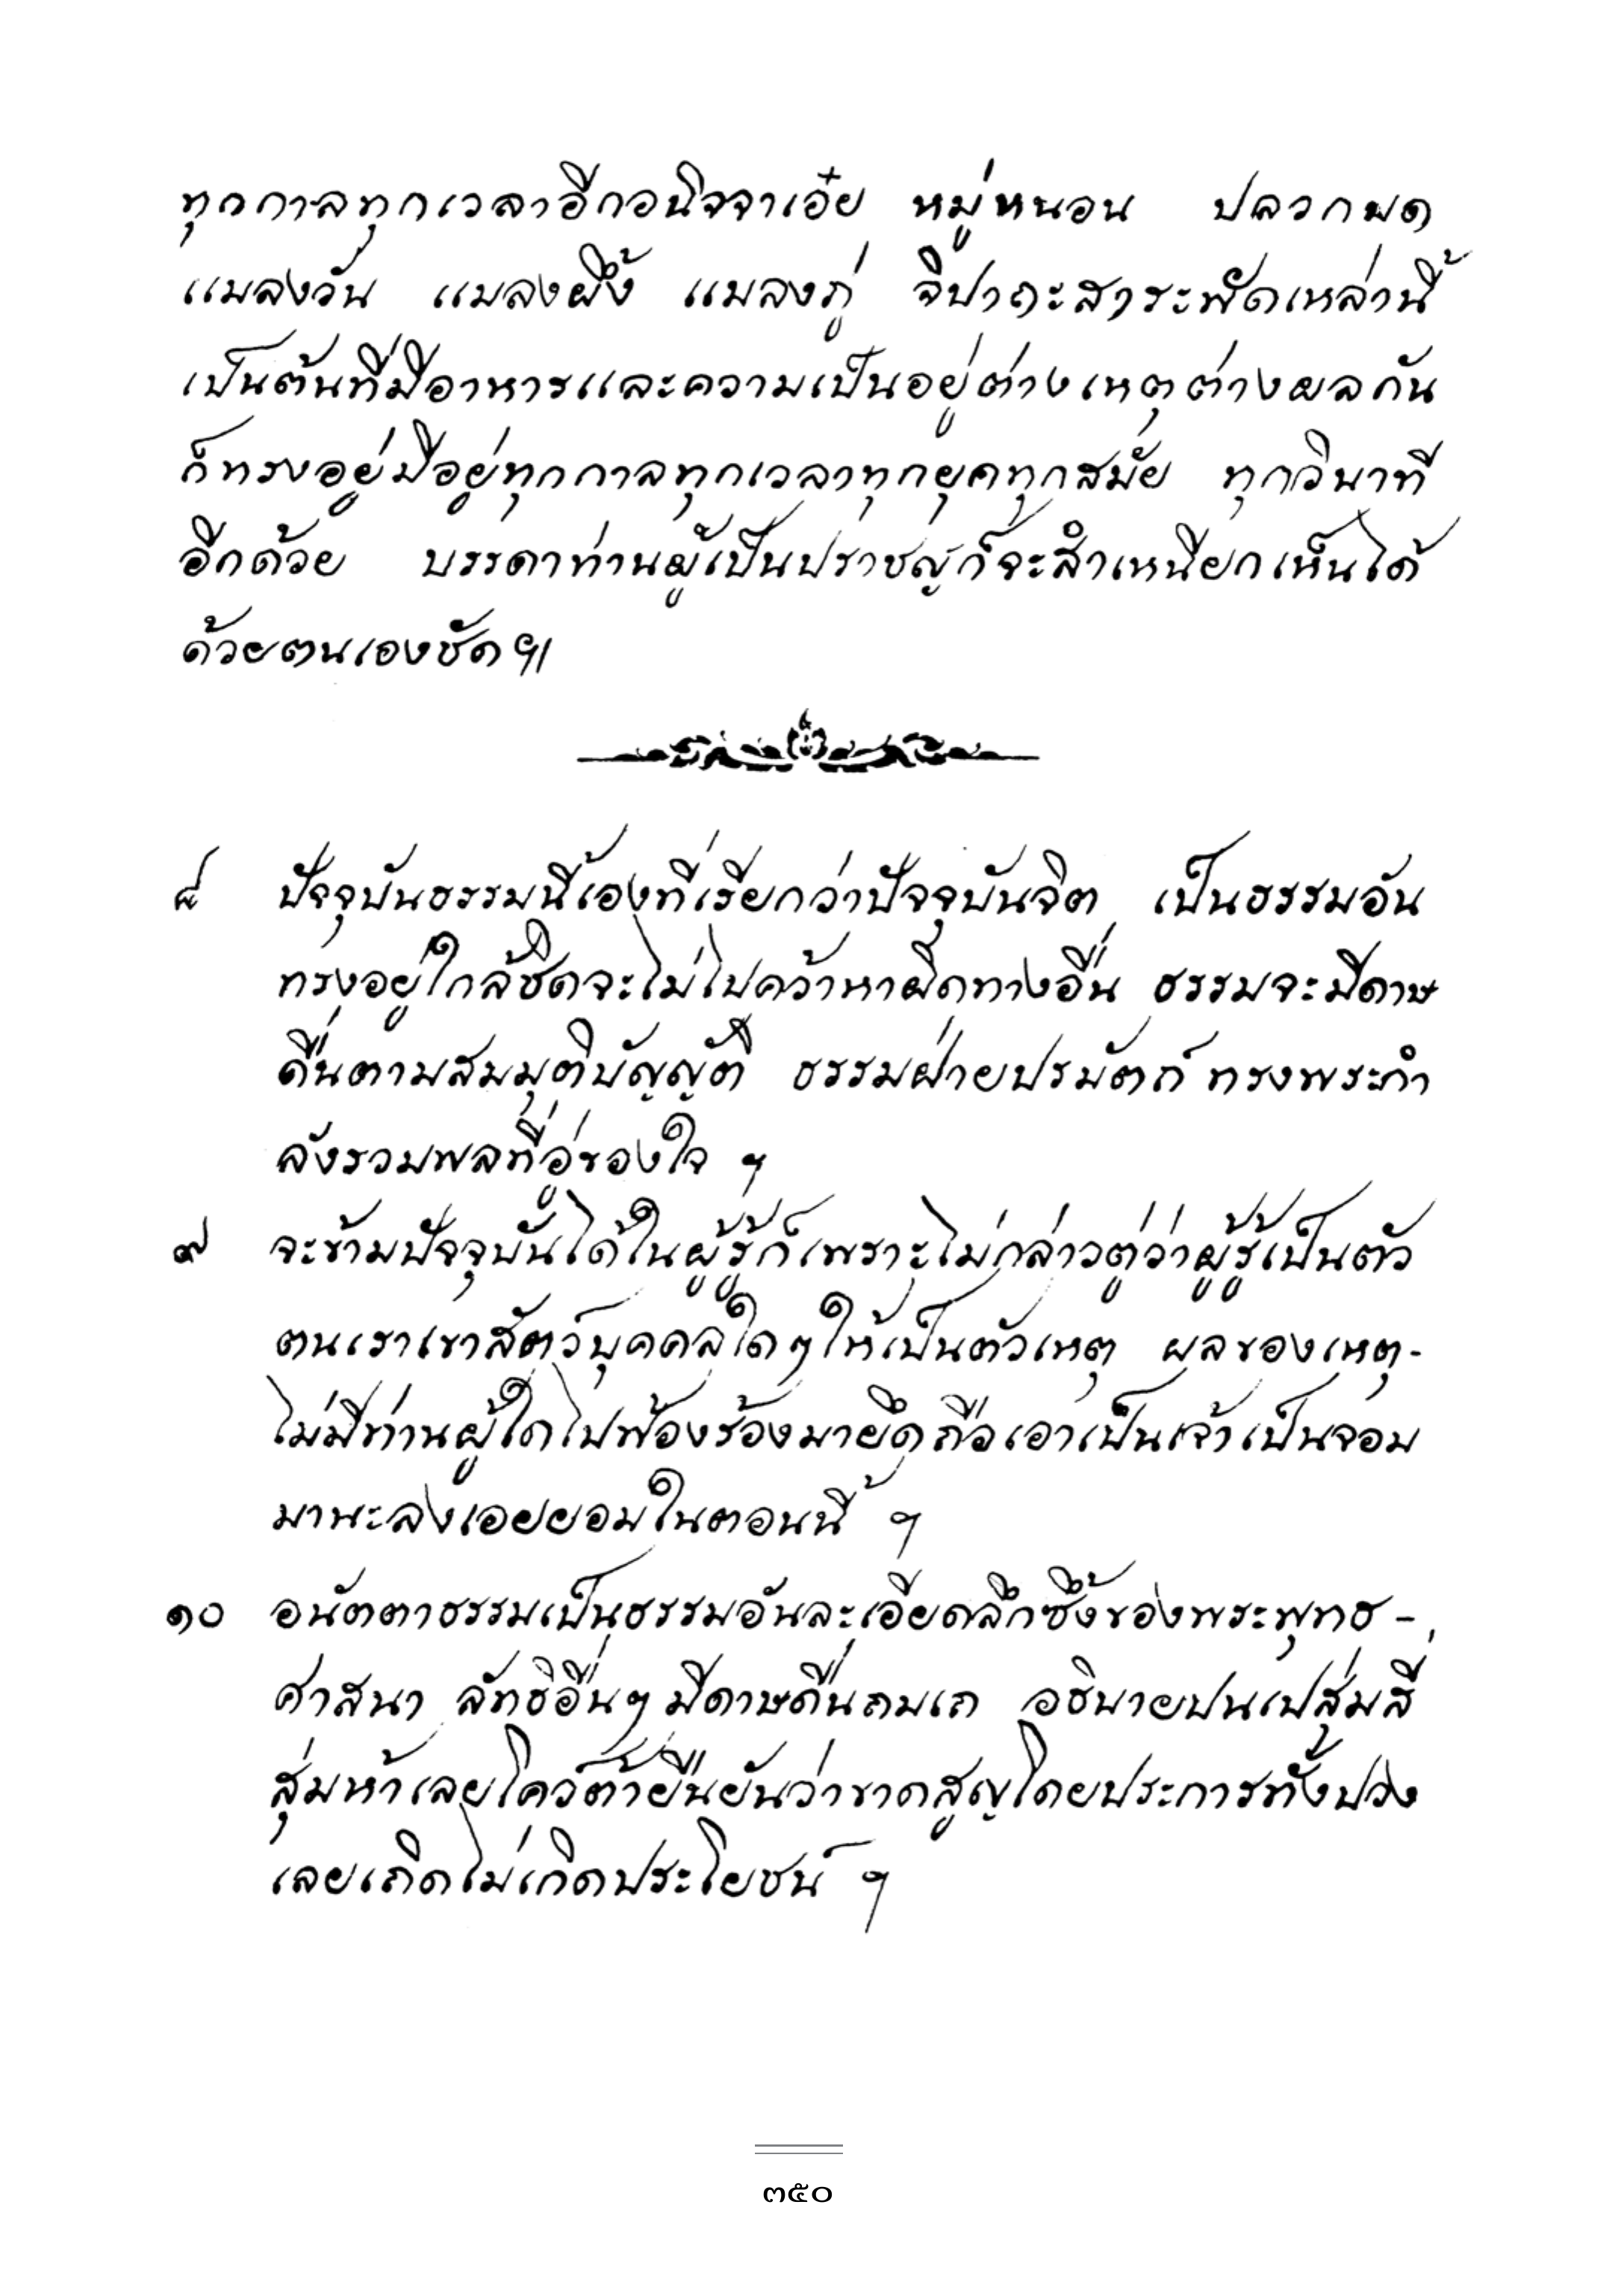 ทุกกาลทุกเวลาอีกอนิจจาเอ๋ย หมู่หนอน ปลวกมด
แมลงวัน แมลงผึ้ง แมลงภู่ จิปาถะสาระพัดเหล่านี้
เป็นต้นที่มีอาหารและความเป็นอยู่ต่างเหตุต่างผลกัน
ก็ทรงอยู่มีอยู่ทุกกาลทุกเวลาทุกยุคทุกสมัย ทุกวินาที
อีกด้วย บรรดาท่านผู้เป็นปราชญ์ก็จะสำเหนียกเห็นได้
ด้วยตนเองชัดฯ
๘ ปัจจุบันธรรมนี้เองที่เรียกว่าปัจจุบันจิต เป็นธรรมอัน
ทรงอยู่ใกล้ชิดจะไม่ไปคว้าหาผิดทางอื่น ธรรมจะมีดาษ
ดื่นตามสมมุติบัญญัติ ธรรมฝ่ายปรมัตถ์ ทรงพระกำ
ลังรวมพลที่อู่ของใจ ฯ
๙ จะข้ามปัจจุบันได้ในผู้รู้ก็เพราะไม่กล่าวตู่ว่าผู้รู้เป็นตัว
ตนเราเขาสัตว์บุคคลใดๆให้เป็นตัวเหตุ ผลของเหตุ-
ไม่มีท่านผู้ใดไปฟ้องร้องมายึดถือเอาเป็นเจ้าเป็นจอม
มานะลงเอยยอมในตอนนี้ ฯ
๑๐ อนัตตาธรรมเป็นธรรมอันละเอียดลึกซึ้งของพระพุทธ-
ศาสนา ลัทธิอื่นๆมีดาษดื่นถมเถ อธิบายปนเปสุ่มสี่
สุ่มห้าเลยโคว์ต้ายืนยันว่าขาดสูญโดยประการทั้งปวง
เลยเถิดไม่เกิดประโยชน์ ฯ
๓๕๐